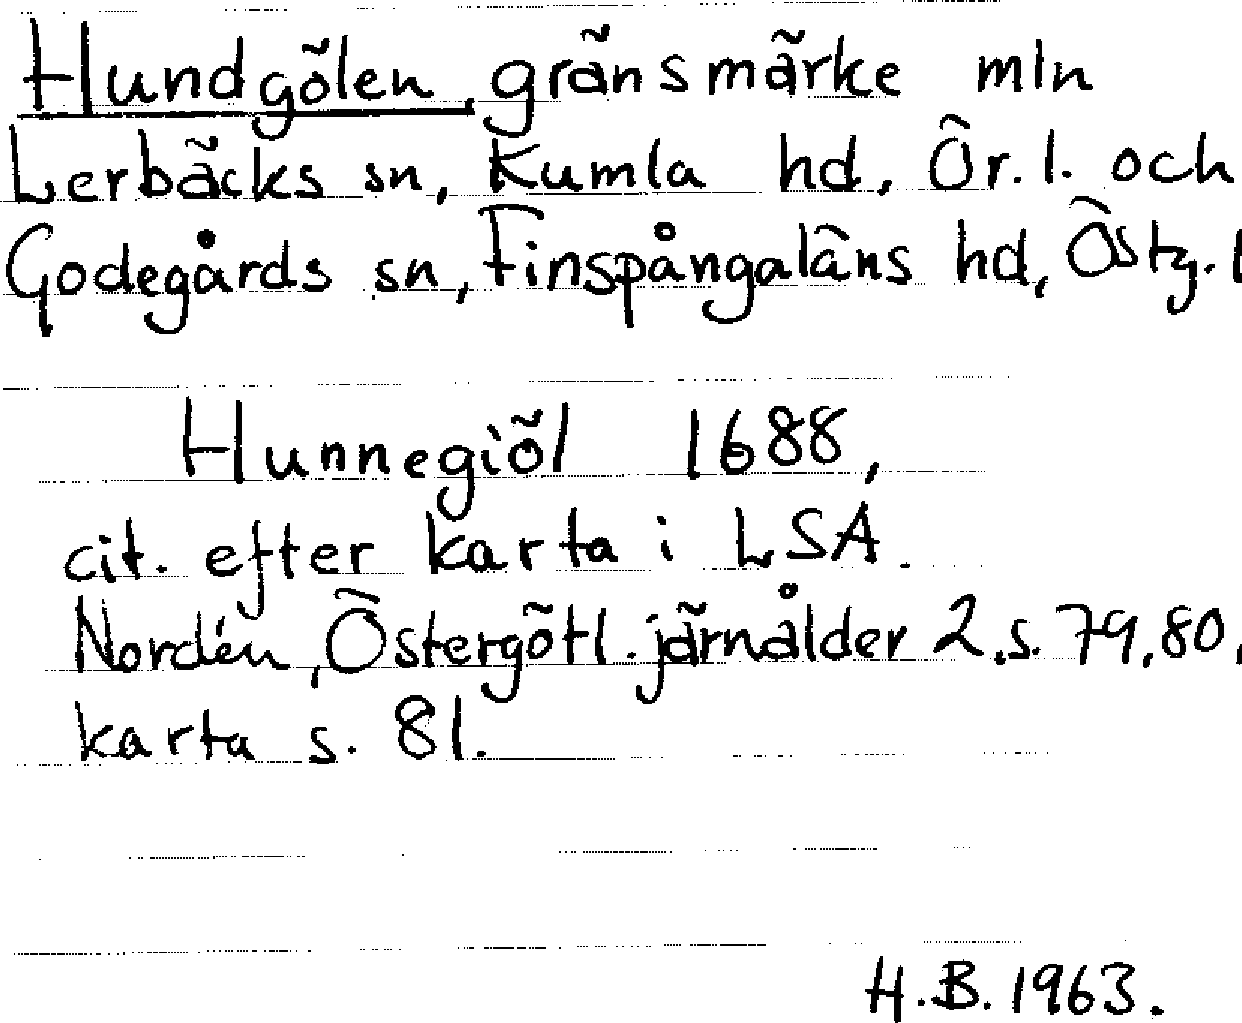 Hundgölen, gränsmärke mln
Lerbäcks sn, Kumla hd, Ör. l. och
Godegårds sn, Finspångaläns hd, Östg. l
Hunnegiöl 1688,
cit. efter karta i LSA.
Nordén, Östergötl. järnålder 2, s. 79, 80,
karta s. 81.
H.B. 1963.